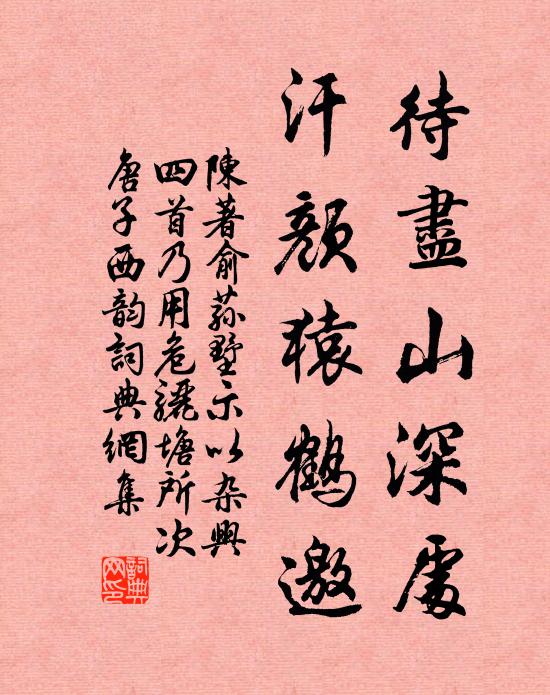 待盡山深處
汗顏猿鶴邀
陳著俞蒜墅示以杂興
四首乃用危驪塘所次
唐子西韵詞典網集
詞典网印